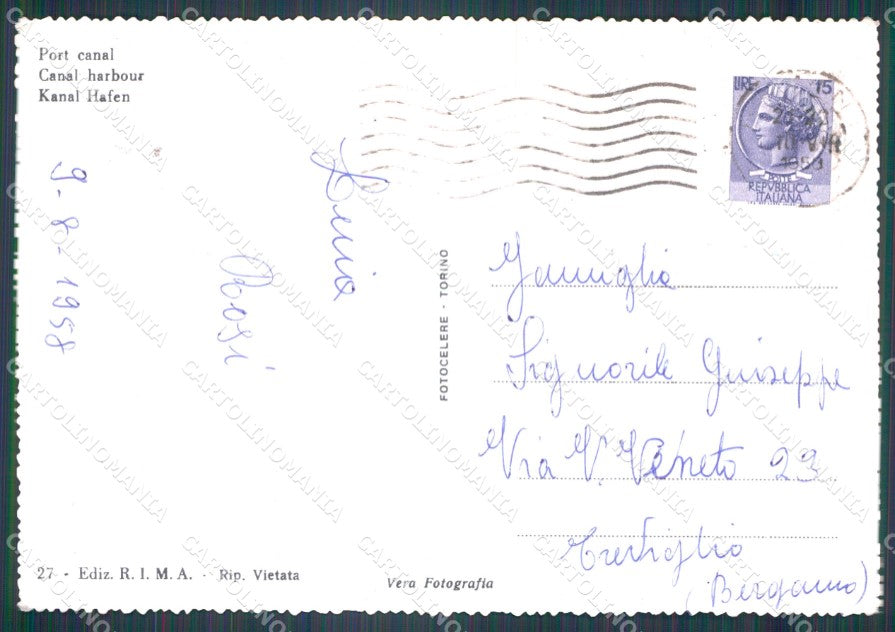 Port canal
Canal harbour
Kanal Hafen
9-8-1958
Rosi
Lenia
FOTOCELERE - TORINO
LIRE 15
POSTE
REPVBBLICA
ITALIANA
Famiglia
Signorile Guiseppe
Via V. Veneto 23
Treviglio
(Bergamo)
27 - Ediz. R. I. M. A. - Rip. Vietata
Vera Fotografia
CARTOLINOMANIA